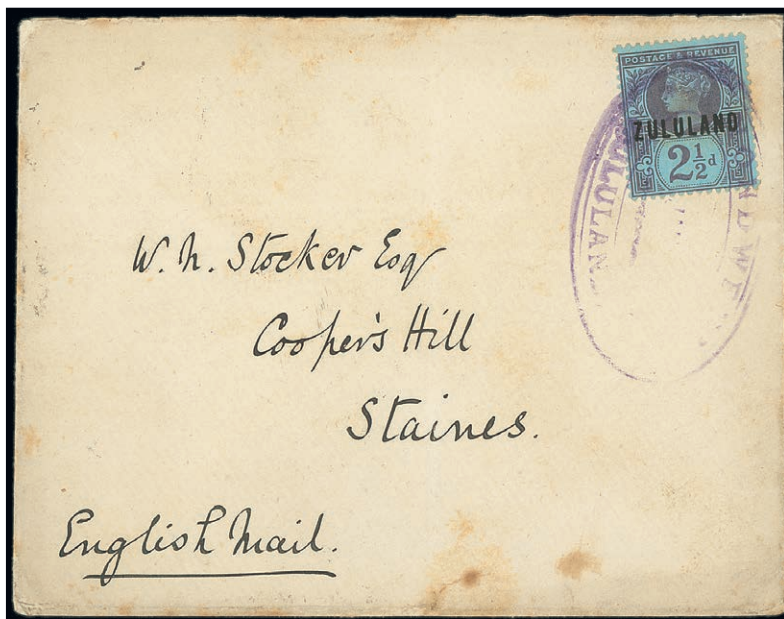 POSTAGE & REVENUE
ZULULAND
2½d
W. N. Stocker Esq
Cooper's Hill
Staines.
English Mail.